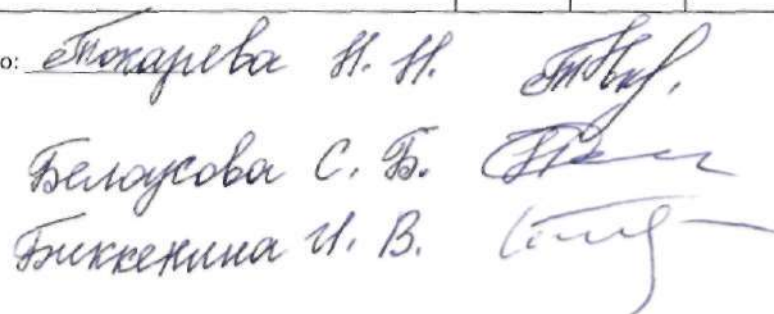 о: Токарева Н. Н.
Белоусова С. Б.
Биккенина И. В.